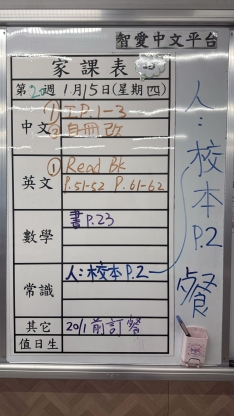 智愛中文平台
家課表
第20週 1月15日(星期四)
中文 ① I P.1-3
② 自冊改
英文 ① Read Bk
P.51-52 P.61-62
數學 書P.23
常識 人:校本P.2
其它 20/1前訂餐
值日生
人:校本P.2
餐